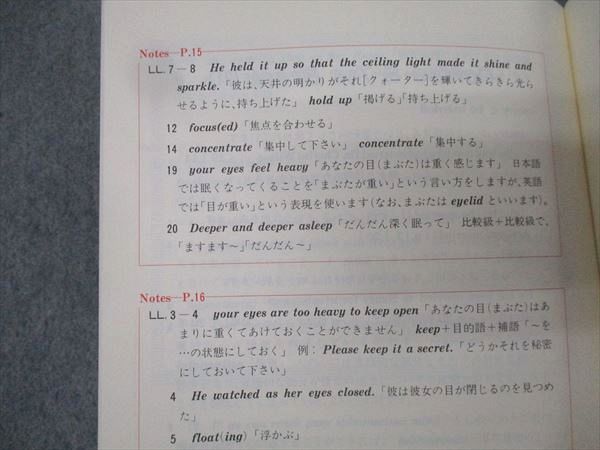 Notes—P.15
LL. 7－8 He held it up so that the ceiling light made it shine and
sparkle.「彼は、天井の明かりがそれ[クォーター]を輝いてきらきら光ら
せるように、持ち上げた」 hold up「掲げる」「持ち上げる」
12 focus(ed)「焦点を合わせる」
14 concentrate「集中して下さい」 concentrate「集中する」
19 your eyes feel heavy「あなたの目(まぶた)は重く感じます」 日本語
では眠くなってくることを「まぶたが重い」という言い方をしますが、英語
では「目が重い」という表現を使います(なお、まぶたは eyelid といいます)。
20 Deeper and deeper asleep「だんだん深く眠って」 比較級＋比較級で、
「ますます～」「だんだん～」
Notes—P.16
LL. 3－4 your eyes are too heavy to keep open「あなたの目(まぶた)はあ
まりに重くてあけておくことができません」 keep＋目的語＋補語「～を
…の状態にしておく」 例： Please keep it a secret.「どうかそれを秘密
にしておいて下さい」
4 He watched as her eyes closed.「彼は彼女の目が閉じるのを見つめ
た」
5 float(ing)「浮かぶ」